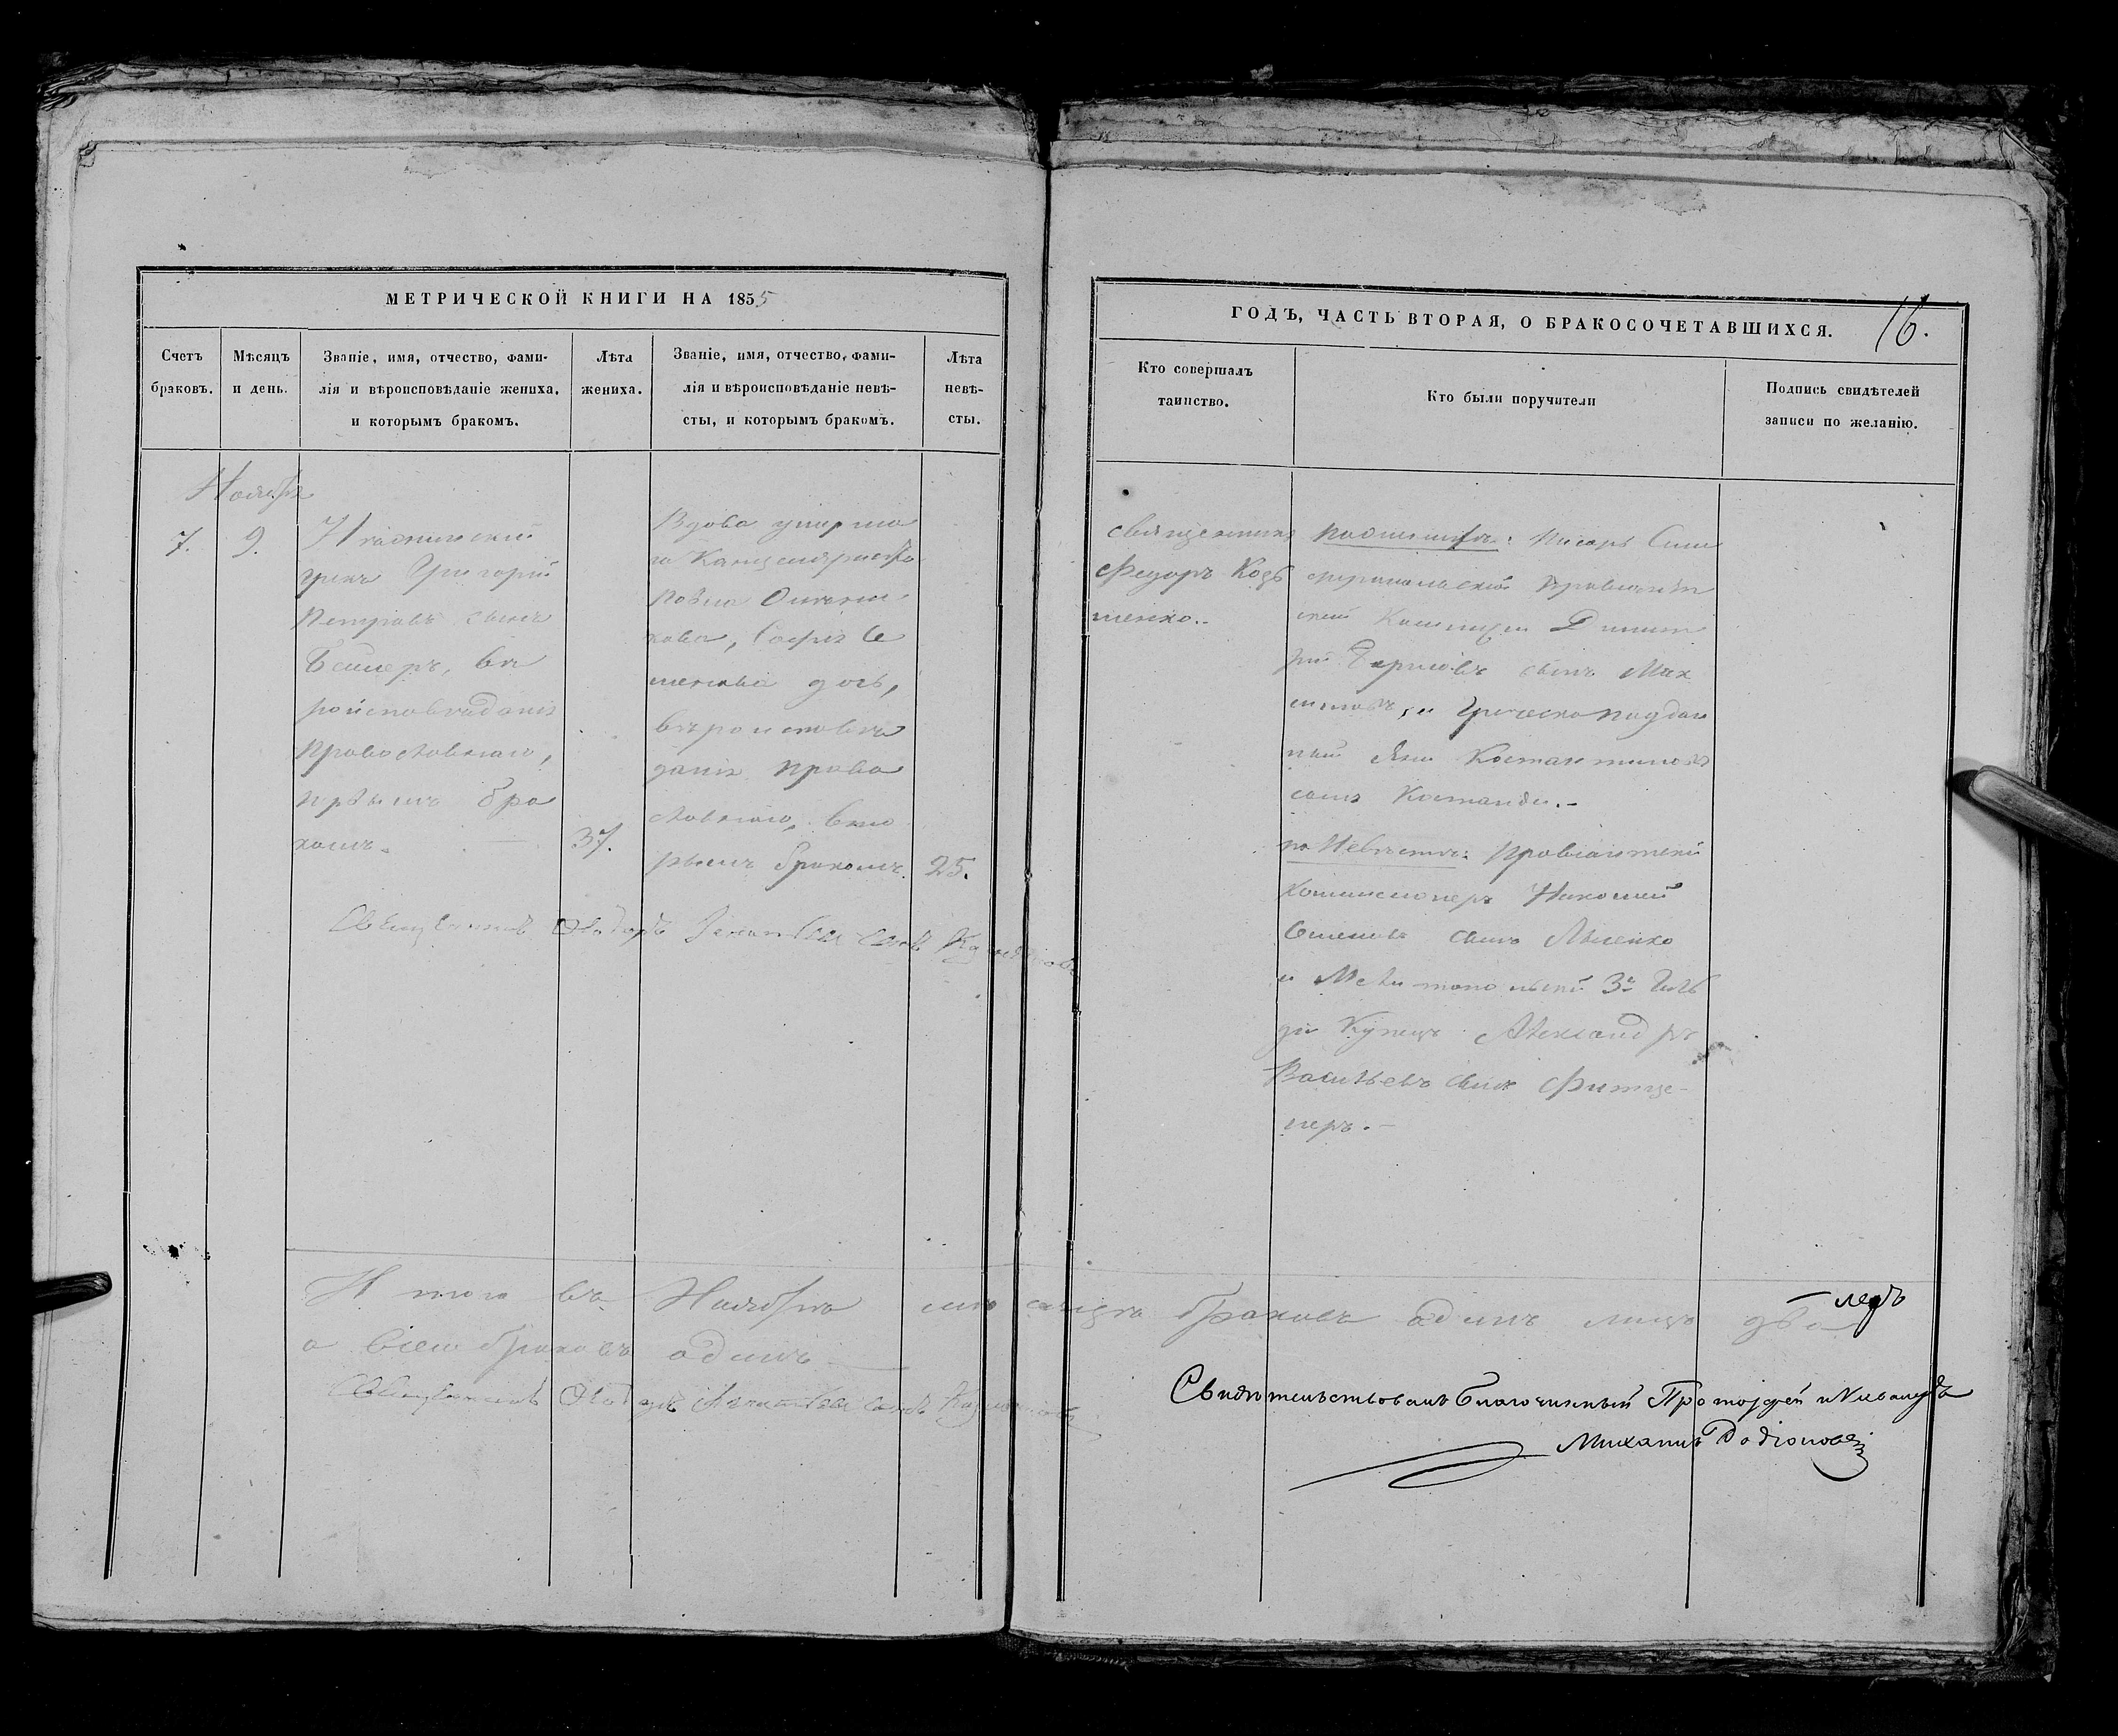 МЕТРИЧЕСКОЙ КНИГИ НА 1855
Счетъ браковъ.
Мѣсяцъ и день.
Званіе, имя, отчество, фами-
лія и вѣроисповѣданіе жениха,
и которымъ бракомъ.
Лѣта жениха.
Званіе, имя, отчество, фами-
лія и вѣроисповѣданіе невѣ-
сты, и которымъ бракомъ.
Лѣта
невѣ-
сты.
Ноября
7.
9.
грекъ Григорій
Петровъ сынъ
вѣ
роисповѣданія
православнаго,
первымъ бра
комъ.
37.
Вдова умерша
го Канцеляриста
Софія Се
менова дочь,
вѣроисповѣ
данія право
славнаго, вто
рымъ бракомъ.
25.
ГОДЪ, ЧАСТЬ ВТОРАЯ, О БРАКОСОЧЕТАВШИХСЯ.
16.
Кто совершалъ
таинство.
Кто были поручители
Подпись свидѣтелей
записи по желанію.
Священникъ
Федоръ Козь
менко.
по женихѣ: писарь Сим
феропольской провіант
ской Коммисіи Димит
рій Борисовъ сынъ Мак
симовъ, и Греческоподдан
ный Яни Костантиновъ
сынъ
по Невѣстѣ: Провіантскій
коммисіонеръ Николай
Семеновъ сынъ
и Мелитопольскій 3й Гиль
діи Купецъ Александръ
Васильевъ сынъ Фитце-
неръ.
Итого въ Ноябрѣ мѣсяцѣ браковъ одинъ лицъ два
а всего браковъ одинъ
Свидѣтельствовалъ Благочинный Протоіерей и Кавалеръ
Михаилъ Родіоновъ